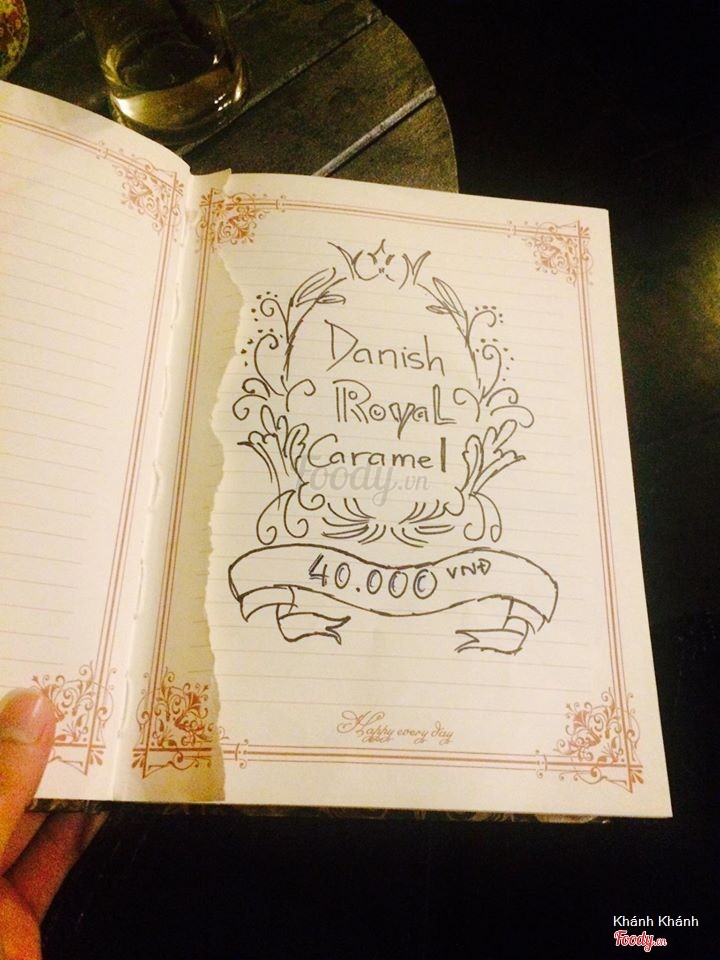 Danish
Royal
Caramel
foody.vn
40.000 VNĐ
Happy every day
Khánh Khánh
Foody.vn